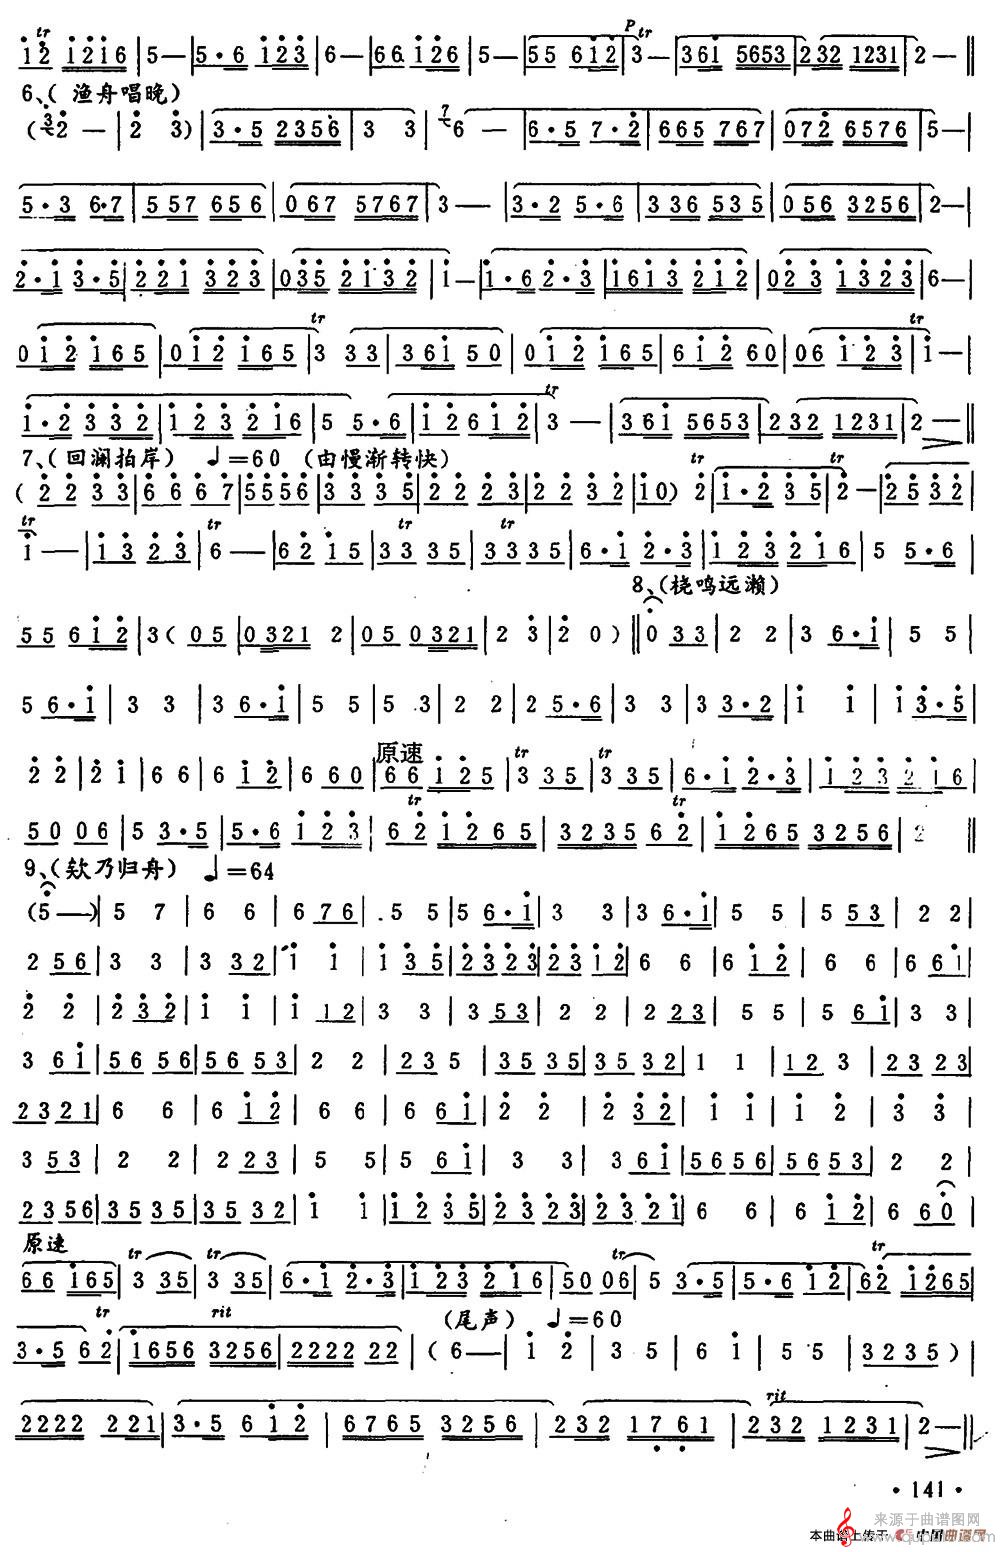 tr P tr
i 2 i 2 i 6 | 5 — | 5 · 6 i 2 3 | 6 — | 6 6 i 2 6 | 5 — | 5 5 6 i 2 | 3 — | 3 6 i 5 6 5 3 | 2 3 2 1 2 3 1 | 2 — ‖
6、( 渔舟唱晚 )
( 3 2 — | 2 3 ) | 3 · 5 2 3 5 6 | 3 3 | 7 6 — | 6 · 5 7 · 2 | 6 6 5 7 6 7 | 0 7 2 6 5 7 6 | 5 — |
5 · 3 6 · 7 | 5 5 7 6 5 6 | 0 6 7 5 7 6 7 | 3 — | 3 · 2 5 · 6 | 3 3 6 5 3 5 | 0 5 6 3 2 5 6 | 2 — |
2 · i 3 · 5 | 2 2 i 3 2 3 | 0 3 5 2 i 3 2 | i — | i · 6 2 · 3 | i 6 i 3 2 i 2 | 0 2 3 i 3 2 3 | 6 — |
tr tr
0 i 2 i 6 5 | 0 i 2 i 6 5 | 3 3 3 | 3 6 i 5 0 | 0 i 2 i 6 5 | 6 i 2 6 0 | 0 6 i 2 3 | i — |
tr
i · 2 3 3 2 | i 2 3 2 i 6 | 5 5 · 6 | i 2 6 i 2 | 3 — | 3 6 i 5 6 5 3 | 2 3 2 1 2 3 1 | 2 — ‖
7、( 回澜拍岸 ) ♩=60 (由慢渐转快)
tr tr
( 2 2 3 3 | 6 6 6 7 | 5 5 5 6 | 3 3 3 5 | 2 2 2 3 | 2 2 3 2 | i 0 ) 2 | i · 2 3 5 | 2 — | 2 5 3 2 |
tr tr tr tr
i — | i 3 2 3 | 6 — | 6 2 i 5 | 3 3 3 5 | 3 3 3 5 | 6 · i 2 · 3 | i 2 3 2 i 6 | 5 5 · 6 |
8、(桡鸣远濑)
5 5 6 i 2 | 3 ( 0 5 | 0 3 2 1 2 | 0 5 0 3 2 1 | 2 3 | 2 0 ) ‖ 0 3 3 | 2 2 | 3 6 · i | 5 5 |
5 6 · i | 3 3 | 3 6 · i | 5 5 | 5 3 | 2 2 | 2 5 · 6 | 3 3 | 3 3 · 2 | i i | i 3 · 5 |
原速 tr tr
2 2 | 2 i | 6 6 | 6 i 2 | 6 6 0 | 6 6 i 2 5 | 3 3 5 | 3 3 5 | 6 · i 2 · 3 | i 2 3 2 i 6
tr tr
5 0 0 6 | 5 3 · 5 | 5 · 6 i 2 3 | 6 2 i 2 6 5 | 3 2 3 5 6 2 | i 2 6 5 3 2 5 6 | 2 ‖
9、(欸乃归舟) ♩=64
(5 —) | 5 7 | 6 6 | 6 7 6 | 5 5 | 5 6 · i | 3 3 | 3 6 · i | 5 5 | 5 5 3 | 2 2 |
2 5 6 | 3 3 | 3 3 2 | i i | i 3 5 | 2 3 2 3 | 2 3 i 2 | 6 6 | 6 i 2 | 6 6 | 6 6 i |
2 2 | 2 3 2 | i i | i 1 2 | 3 3 | 3 5 3 | 2 2 | 2 2 3 | 5 5 | 5 6 i | 3 3 |
3 6 i | 5 6 5 6 | 5 6 5 3 | 2 2 | 2 3 5 | 3 5 3 5 | 3 5 3 2 | 1 1 | 1 2 3 | 2 3 2 3 |
2 3 2 1 | 6 6 | 6 i 2 | 6 6 | 6 6 i | 2 2 | 2 3 2 | i i | i 2 | 3 3 |
3 5 3 | 2 2 | 2 2 3 | 5 5 | 5 6 i | 3 3 | 3 6 i | 5 6 5 6 | 5 6 5 3 | 2 2 |
2 3 5 6 | 3 5 3 5 | 3 5 3 2 | i i | i 2 3 5 | 2 3 2 3 | 2 3 2 i | 6 6 | 6 i 2 | 6 6 0 |
原速 tr tr tr tr
6 6 i 6 5 | 3 3 5 | 3 3 5 | 6 · i 2 · 3 | i 2 3 2 i 6 | 5 0 0 6 | 5 3 · 5 | 5 · 6 i 2 | 6 2 i 2 6 5
tr rit (尾声) ♩=60
3 · 5 6 2 | i 6 5 6 3 2 5 6 | 2 2 2 2 2 2 | ( 6 — | i 2 | 3 5 | 6 i | 5 5 | 3 2 3 5 ) |
rit
2 2 2 2 2 2 1 | 3 · 5 6 i 2 | 6 7 6 5 3 2 5 6 | 2 3 2 1 7 6 1 | 2 3 2 1 2 3 1 | 2 — ‖
· 141 ·
来源于曲谱图网
本曲谱上传于 中国曲谱网